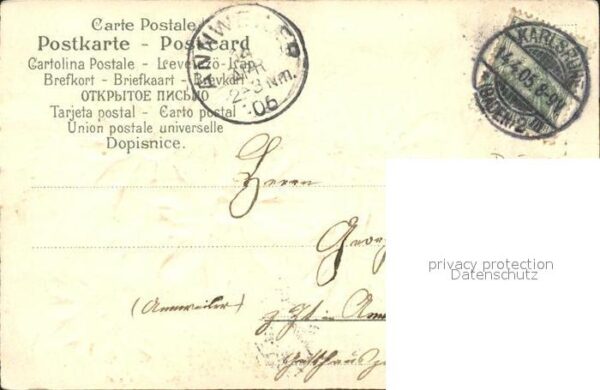 Carte Postale
Postkarte - Postcard
Cartolina Postale - Levelező-Lap
Brefkort - Briefkaart - Brevkort
ОТКРЫТОЕ ПИСЬМО
Tarjeta postal - Carto postal
Union postale universelle
Dopisnice.
ANNWEILER
APR
2-3 Nm.
05
KARLSRUHE
14.4.05. 8-9V.
(BADEN) 2.
Herrn
Georg
privacy protection
Datenschutz
(Annweiler)
z. Zt. in Ann
Gasthaus z